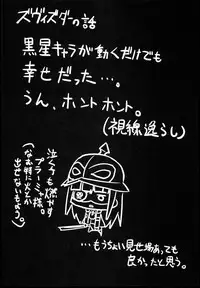 ズヴィズダーの話
黒星キャラが動くだけでも
幸せだった…。
うん、ホントホント。
(視線逸らし)
泣く子も燃やす
プラーミャ様。
(なお判に火とか
出せないもよう。)
…もうちょい見せ場あっても
良かったと思う。